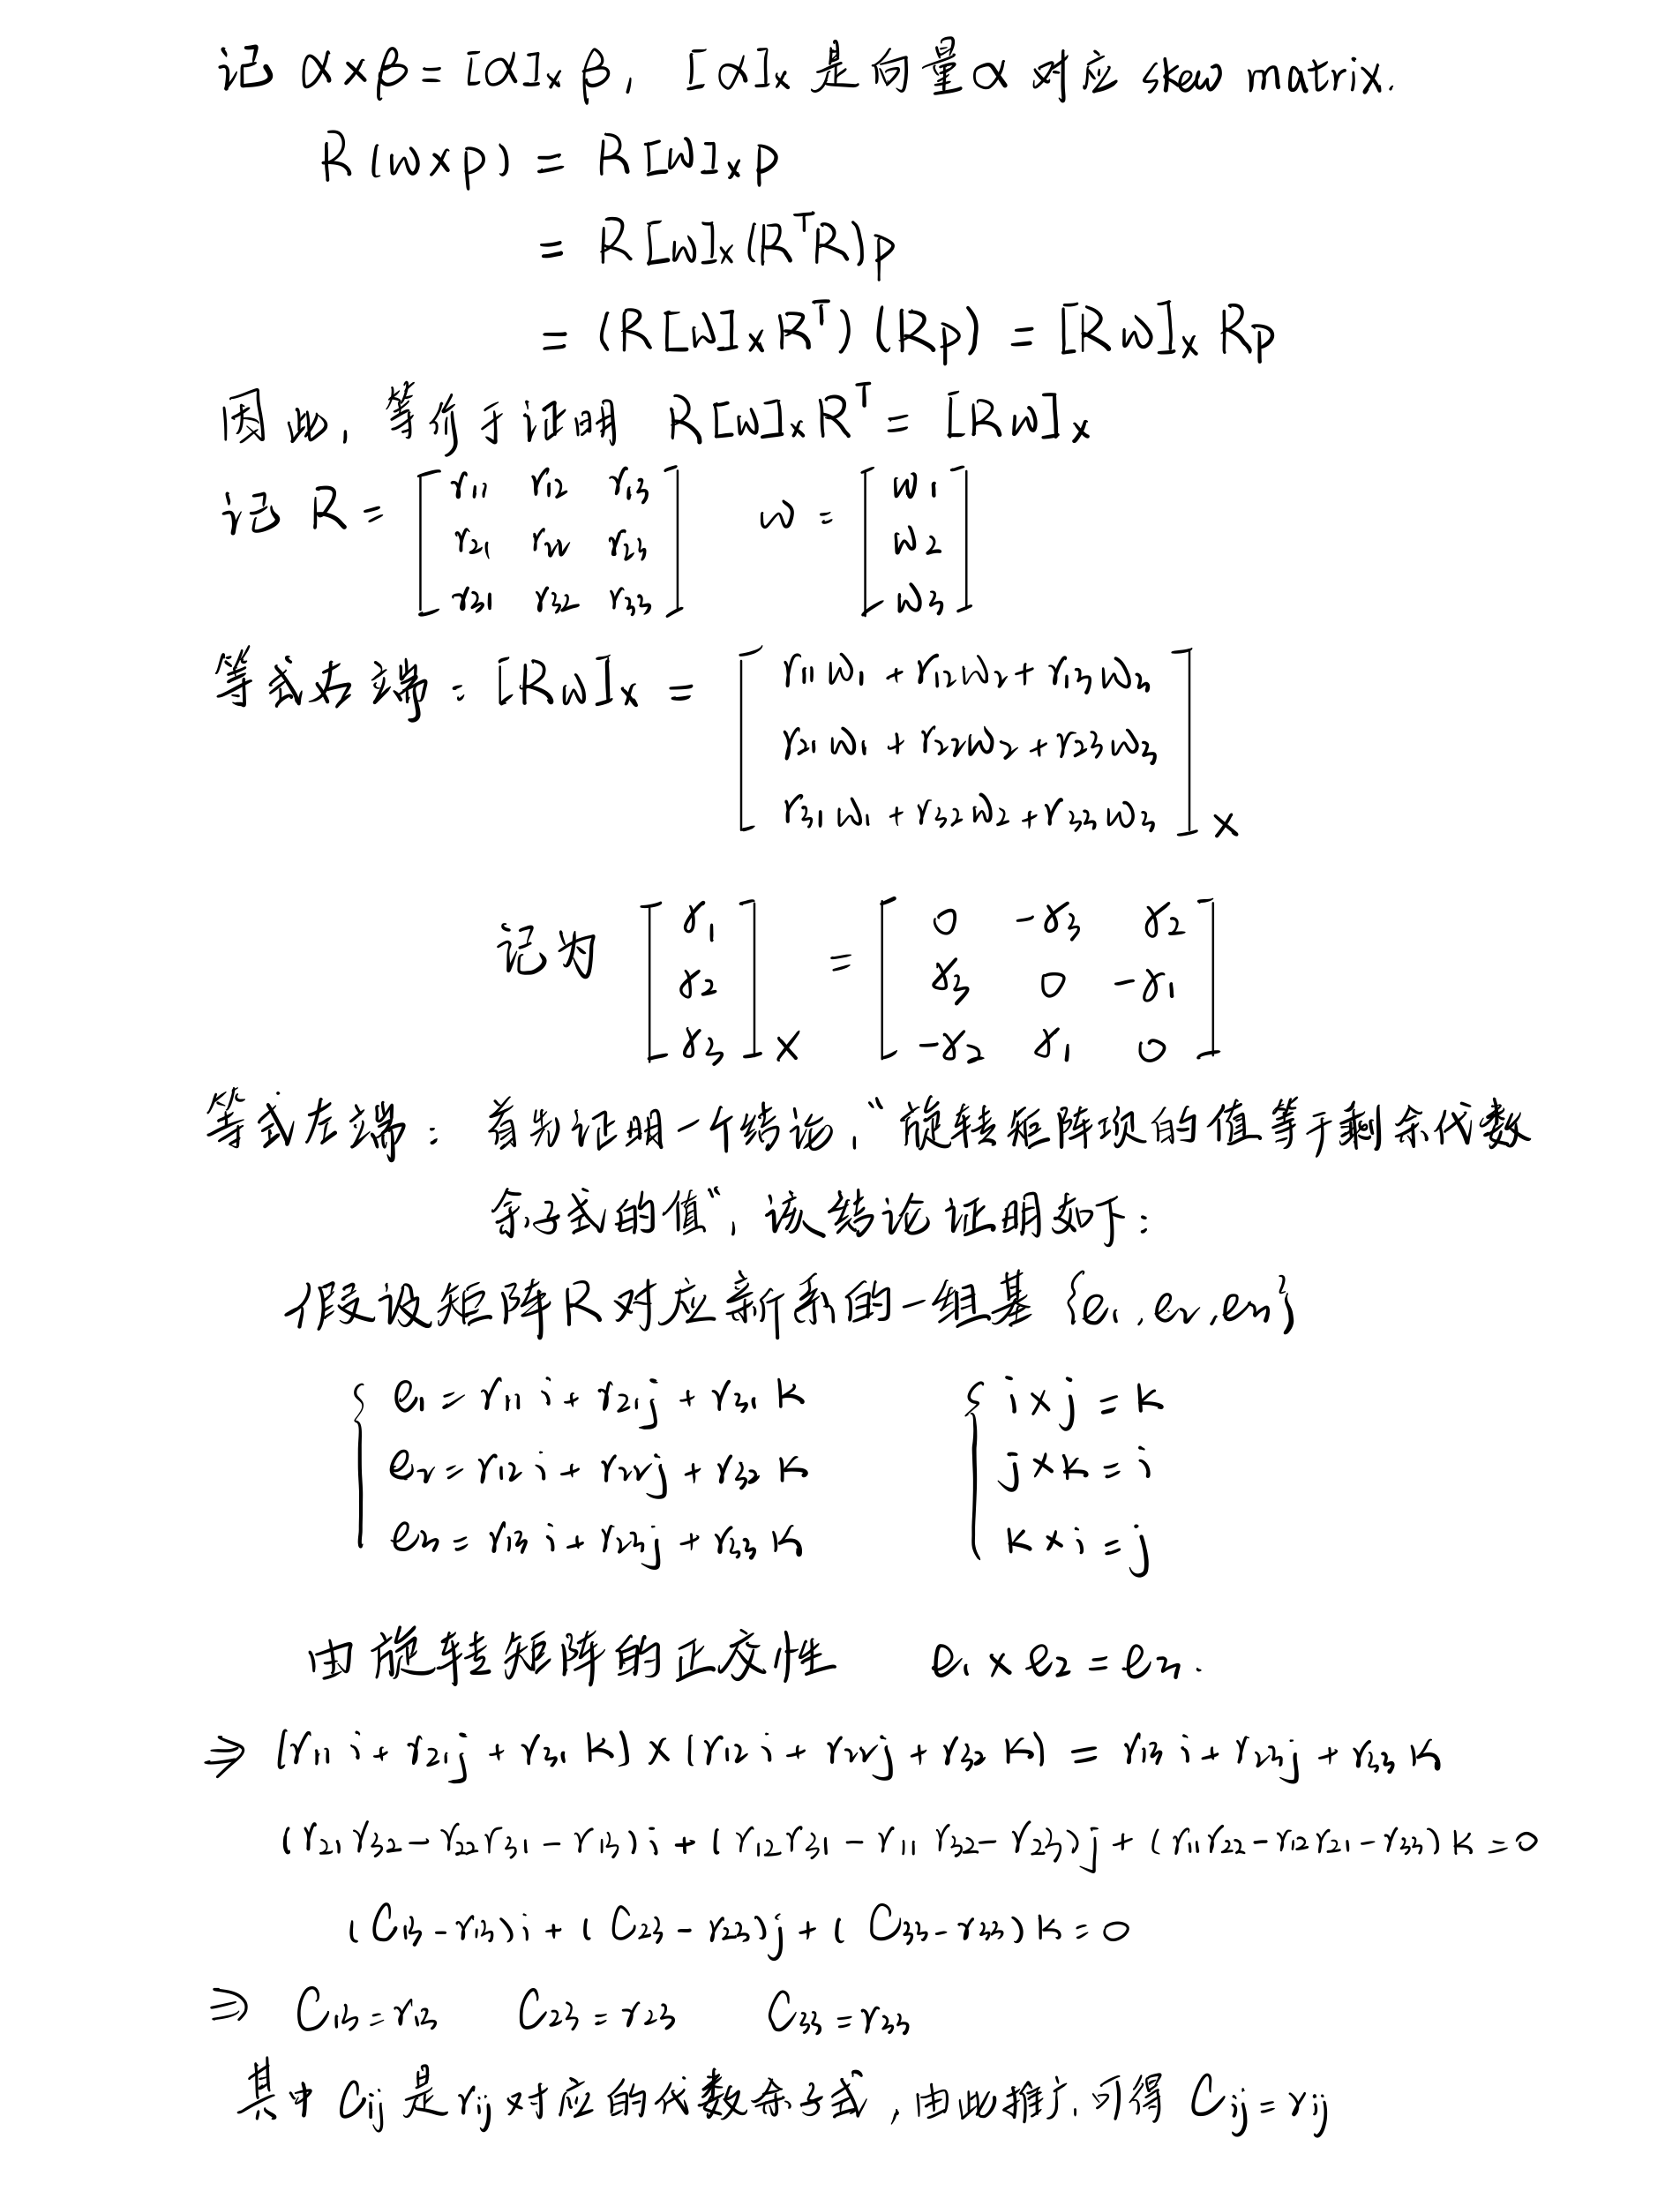 记 α×β = [α]ₓ β, [α]ₓ 是向量α 对应 skew matrix.
R(w×p) = R[w]ₓp
= R[w]ₓ(RᵀR)p
= (R[w]ₓRᵀ)(Rp) = [Rw]ₓ Rp
因此, 等价于证明 R[w]ₓRᵀ = [Rw]ₓ
记 R = [ r₁₁ r₁₂ r₁₃ w = [ w₁
r₂₁ r₂₂ r₂₃ w₂
r₃₁ r₃₂ r₃₃ ] w₃ ]
等式右端: [Rw]ₓ = [ r₁₁w₁ + r₁₂w₂ + r₁₃w₃
r₂₁w₁ + r₂₂w₂ + r₂₃w₃
r₃₁w₁ + r₃₂w₂ + r₃₃w₃ ]ₓ
记为 [ γ₁ = [ 0 -γ₃ γ₂
γ₂ γ₃ 0 -γ₁
γ₃ ]ₓ -γ₂ γ₁ 0 ]
等式左端: 首先证明一个结论, “旋转矩阵项的值等于剩余代数
余子式的值”, 该结论证明如下:
假设矩阵R对应新系的一组基 {e₁, e₂, e₃}
{ e₁ = r₁₁ i + r₂₁ j + r₃₁ k { i × j = k
e₂ = r₁₂ i + r₂₂ j + r₃₂ k j × k = i
e₃ = r₁₃ i + r₂₃ j + r₃₃ k k × i = j
由旋转矩阵的正交性 e₁ × e₂ = e₃.
⇒ (r₁₁ i + r₂₁ j + r₃₁ k) × (r₁₂ i + r₂₂ j + r₃₂ k) = r₁₃ i + r₂₃ j + r₃₃ k
(r₂₁r₃₂ - r₂₂r₃₁ - r₁₃) i + (r₁₂r₃₁ - r₁₁r₃₂ - r₂₃) j + (r₁₁r₂₂ - r₁₂r₂₁ - r₃₃) k = 0
(C₁₃ - r₁₃) i + (C₂₃ - r₂₃) j + (C₃₃ - r₃₃) k = 0
⇒ C₁₃ = r₁₃ C₂₃ = r₂₃ C₃₃ = r₃₃
其中 Cij 是 rij 对应的代数余子式, 由此推广, 可得 Cij = rij